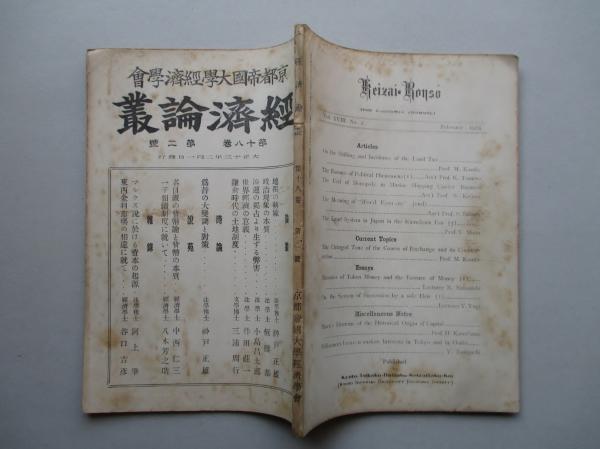 京都帝國大學經濟學會
經濟論叢
第十八卷 第二號
大正十三年二月一日發行
論叢
地租の轉嫁 法學博士 神戸正雄
政治現象の本質 法學士 恒藤恭
海運の獨占より生ずる弊害 法學士 小島昌太郎
世界經濟の意義 法學士 作田莊一
鎌倉時代の土地制度 文學博士 三浦周行
時論
爲替の大變調と對策 法學博士 神戸正雄
說苑
名目派の貨幣論と貨幣の本質 經濟學士 中西仁三
一子相續制度に就いて 經濟學士 八木芳之助
雜錄
マルクス說に於ける資本の起源 法學博士 河上肇
東西金利市場の相違に就て 經濟學士 谷口吉彦
第十八卷 第二號
京都帝國大學經濟學會
Keizai-Ronso
(THE ECONOMIC JOURNAL)
Vol. XVIII No. 2. February 1924
Articles
On the Shifting and Incidence of the Land Tax
The Essence of Political Phenomena
The Evil of Monopoly in Marine Shipping
The Meaning of "World Economy"
The Land System in Japan in the Kamakura Era
Current Topics
The Changed Tone of the Course of Exchange and its
Essays
Theories of Token Money and the Essence of Money
On the System of Succession by a sole Heir
Miscellaneous Notes
Marx's Theories of the Historical Origin of Capital
Differences between market Interests in Tokyo and in Osaka
Y. Taniguchi
Published
Kyoto Teikoku-Daigaku Keizaigaku-Kai
(KYOTO IMPERIAL UNIVERSITY ECONOMIC SOCIETY)